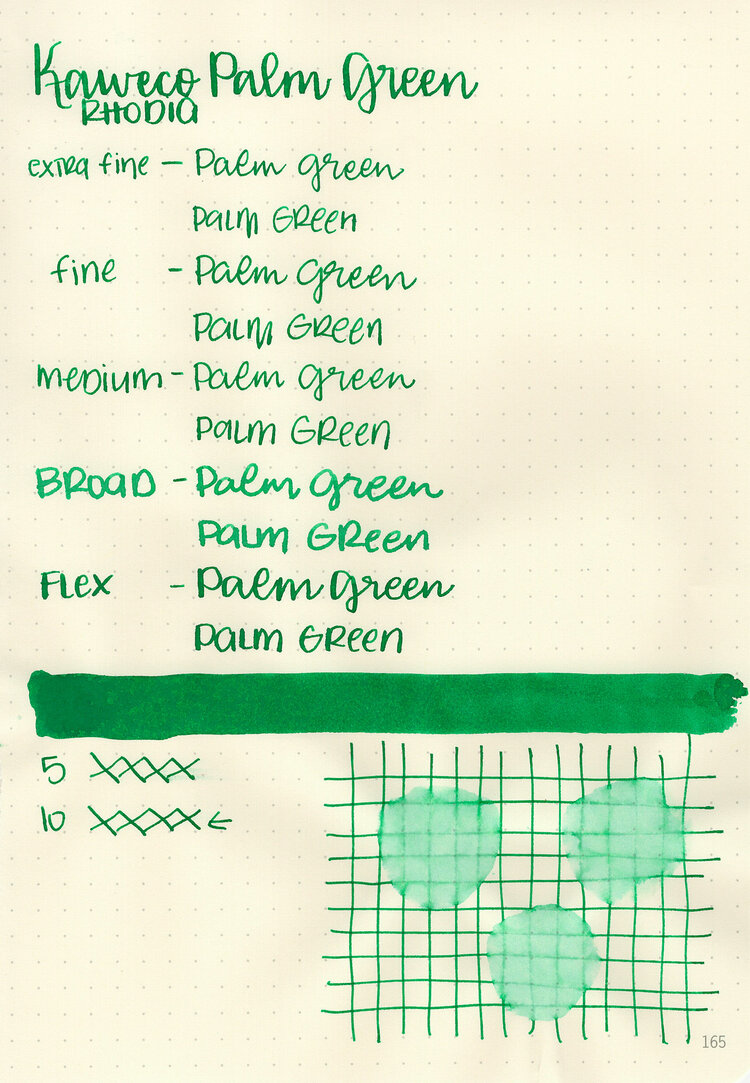 Kaweco Palm Green
RHODIA
extra fine - Palm green
PALM GReen
fine - Palm green
PALM GReen
meDium - Palm green
PALM GReen
BROAD - Palm green
PALM GReen
FLex - Palm Green
PALM GReen
5 XXXX
10 XXXX←
165